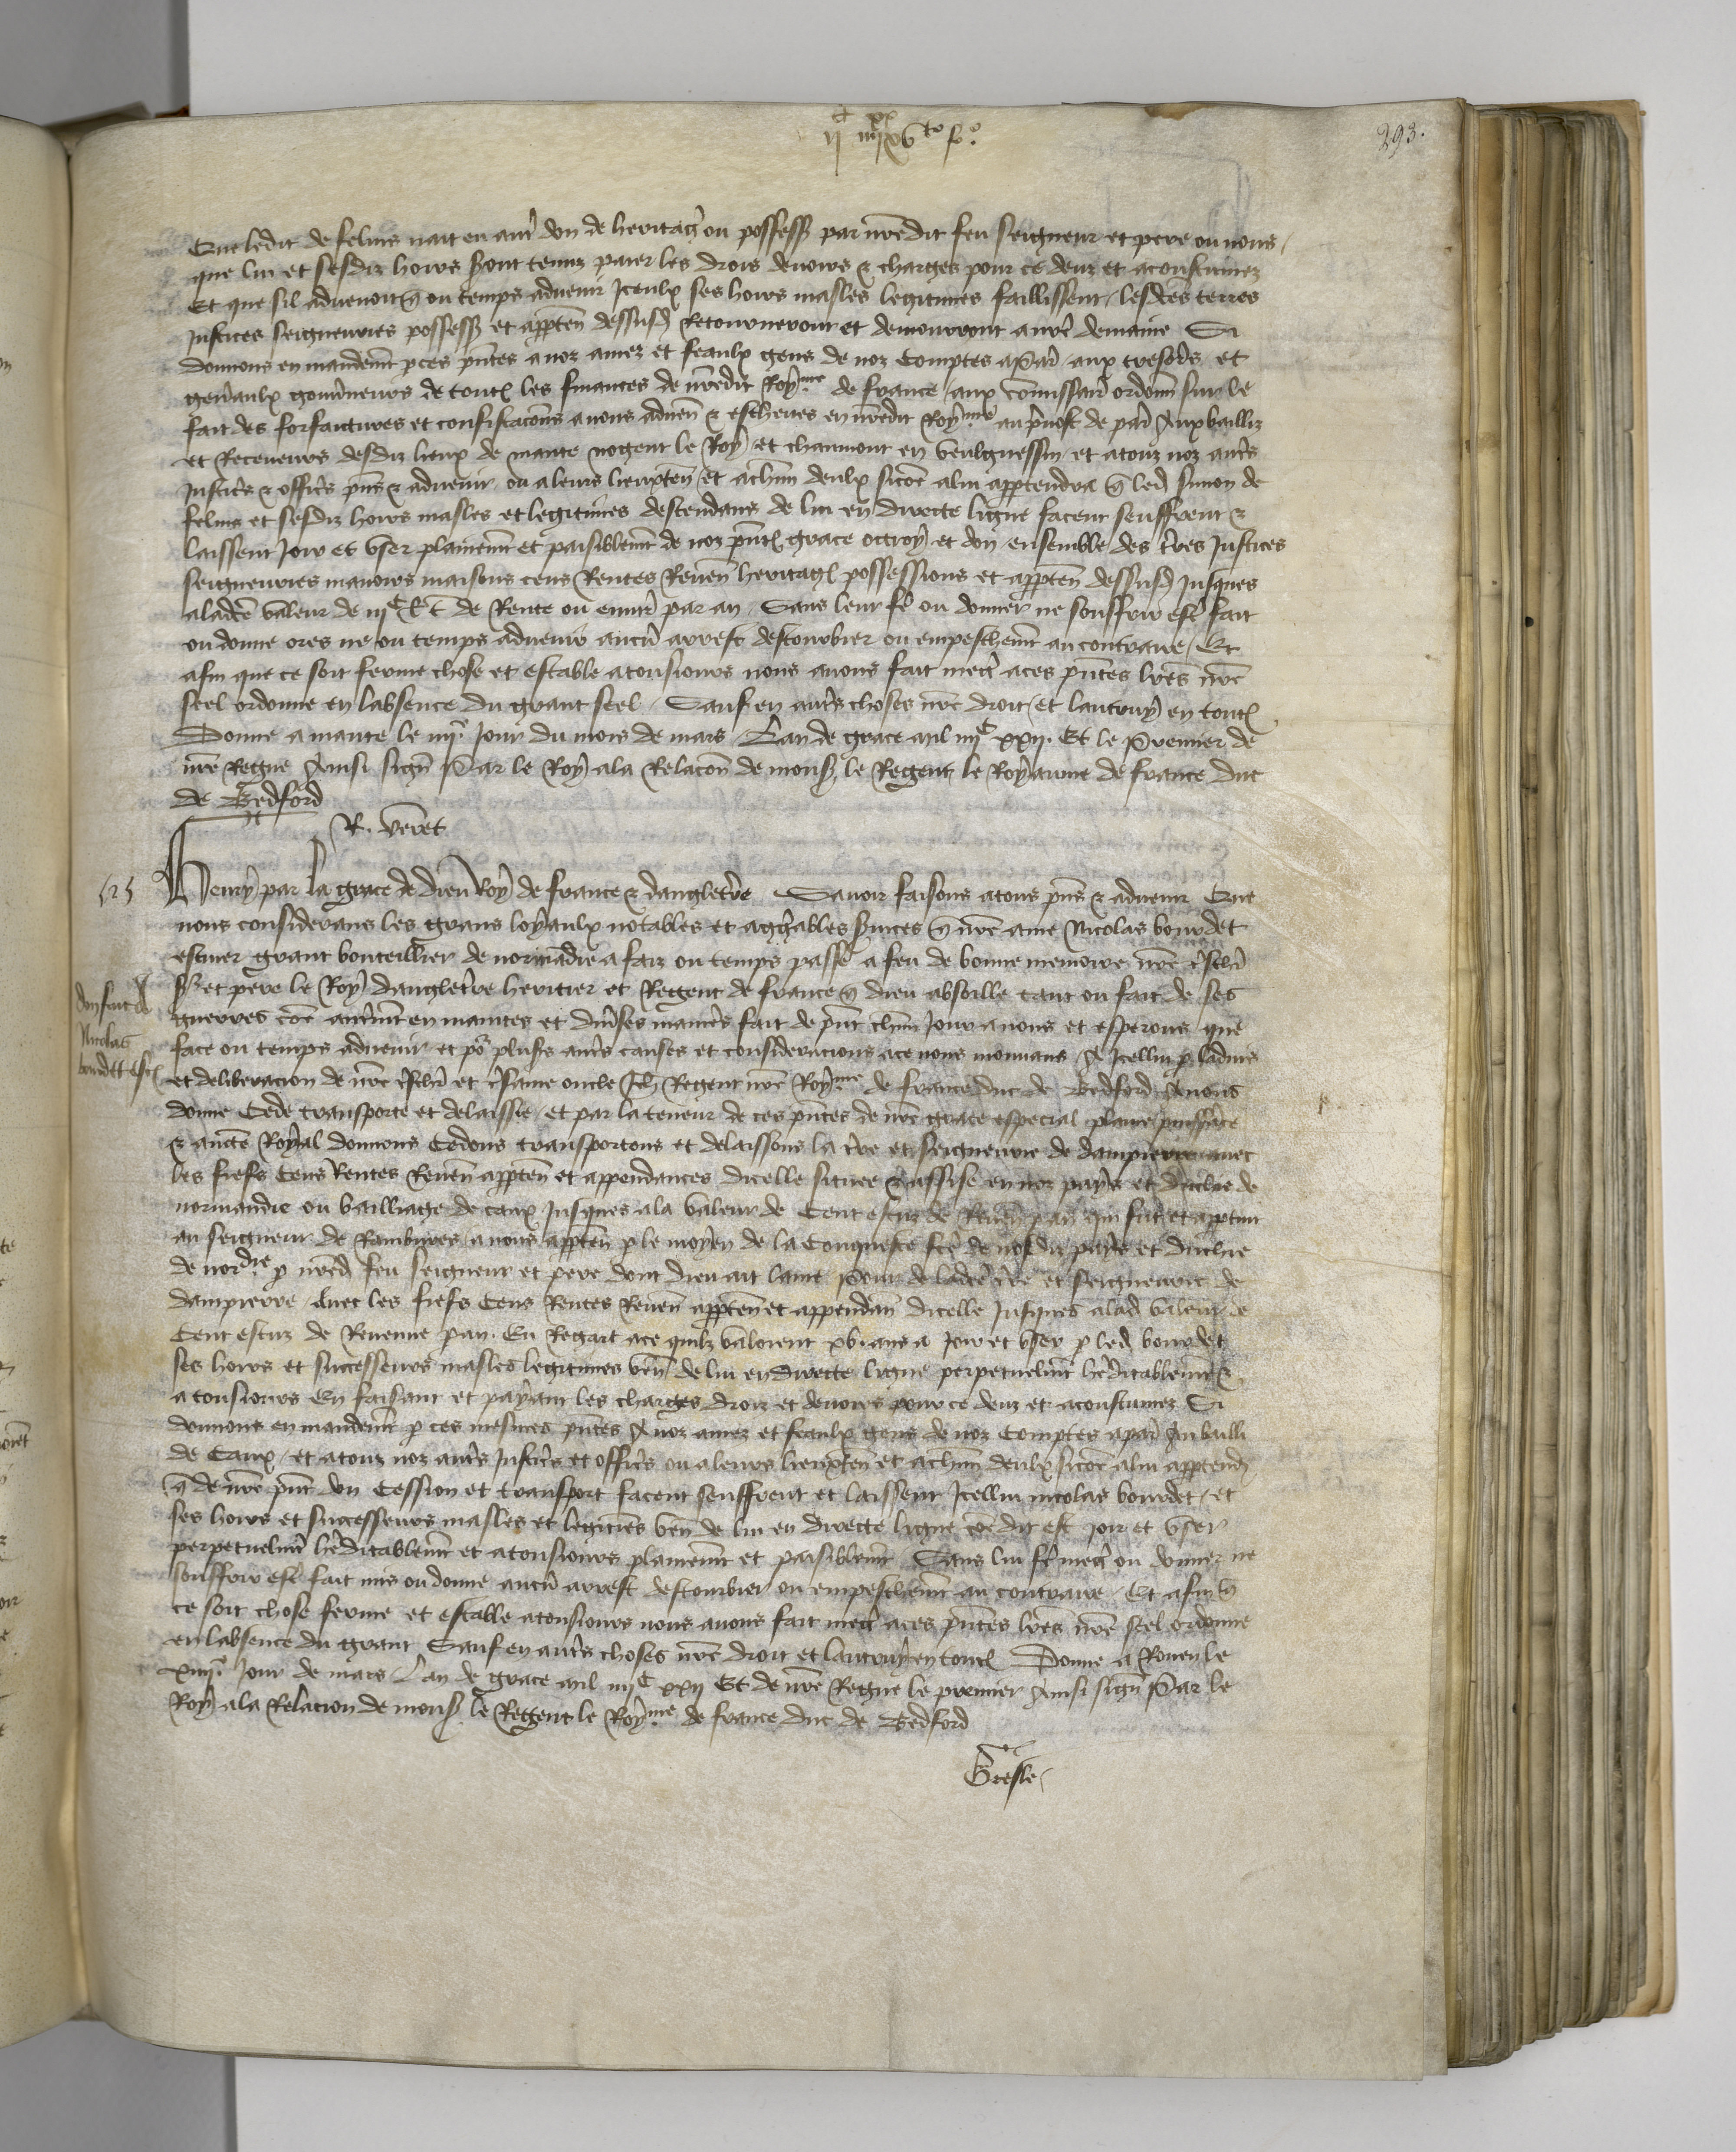 IIC IIIIxx XVto fo.
293.
Que ledit de felins nait eu autre don de heritage ou possess par nredit feu seigneur et pere ou nous
que lui et sesdiz hoirs seront tenuz paier les drois devoirs & charges pour ce deuz et acoustumez
Et que sil advenoit q ou temps advenir Iceulx ses hoirs masles legitimes faillissent lesdctes terres
Justices seigneuries possess et apparten dessusd Retourneront et demourront a nre demaine Si
donnons en mandemt p ces pntes a noz amez et feaulx gens de noz Comptes a Paris aux tresors et
genaulx gouvneurs de toutes les finances de nredit Royme de france aux comissaires ordonn sur le
fait des forfaictures et confiscacons a nous advenues & escheues en nredit Royme au pvost de paris Aux bailliz
et Receveurs desdiz lieux de mante nogent le Roy et chaumont en veulguessin et a touz noz autres
Justiciers & officiers pns & advenir ou a leurs lieuxten et a chun deulx si coe a lui appartendra q led simon de
felins et sesdiz hoirs masles et legitimes descendans de lui en directe ligne facent seuffrent &
laissent Joir et user plainemt et paisiblemt de noz pntes grace octroy et don ensemble des tres Justices
seigneuries manoirs maisons cens Rentes Revenues heritages possessions et apparten dessusd Jusques
a ladce valeur de IIIc l t de Rente ou environ par an Sans leur fe ou donner ne souffrir est fait
ou donne ores ne ou temps advenir aucun arrest destourbier ou empeschemt au contraire Et
afin que ce soit ferme chose et estable a tousiours nous avons fait mect a ces pntes lres nre
seel ordonne en labsence du grant seel Sauf en autres choses nre droit et lautruy en toutes
Donne a mante le IIIIe Jour du mois de mars Lan de grace mil IIIIc XXII Et le Premier de
nre Regne Ainsi signe Par le Roy a la Relacon de mons le Regent le Royaume de france duc
de Bedford
R. Veret
Henry par la grace de dieu Roy de france & dangletere Savoir faisons a tous pns & advenir Que
nous considerans les grans loyaulx notables et aggreables services q nre ame Nicolas bourdet
escuier grant bouteillier de normandie a faiz ou temps passe a feu de bonne memoire nre tschier
sr et pere le Roy dangletere heritier et Regent de france q dieu absoille tant ou fait de ses
Don fait a
Nicolas
bourdet escu
guerres coe autremt en maintes et diverses manieres fait de pnt chun Jour a nous et esperons que
face ou temps advenir et por plusrs autres causes et consideracions a ce nous mouvans A Icellui p ladvis
et deliberacion de nre tschier et tsame oncle Jeh Regent nre Royme de france duc de Bedford Avons
donne Cede transporte et delaissie et par la teneur de ces pntes de nre grace especial plaine puissance
& aucte Royal donnons Cedons transportons et delaissons la tre et seigneurie de dampierre avec
les fiefs Cens Rentes Revenues apparten et appendances dicelle situee & assise en noz pays et duchie de
normandie ou bailliage de caux Jusques a la valeur de Cent escuz de Revenue p an qui fut et apptint
au seigneur de Rambures a nous apparten p le moyen de la Conqueste fte de nosdiz pays et duchie
de nordie p nred feu seigneur et pere dont dieu ait lame Pour de ladce tre et seigneurie de
dampierre Avec les fiefs Cens Rentes Revenues apparten et appendan dicelle Jusques a lad valeur de
Cent escuz de Revenue p an En Regart a ce quilz valoient XVI ans a Joir et user p led bourdet
ses hoirs et successeurs masles legitimes ven de lui en directe ligne perpetuelmt heditablemt &
a tousiours En faisant et payant les charges droiz et devoirs pour ce deuz et acoustumez Si
donnons en mandemt p ces mesmes pntes A noz amez et feaulx gens de noz Comptes a paris Au bailli
de Caux et a touz noz autres Justiciers et officiers ou a leurs lieuxten et a chun deulx si coe a lui appartend
q de nre pnt don Cession et transport facent seuffrent et laissent Icellui nicolas bourdet et
ses hoirs et successeurs masles et legitimes ven de lui en directe ligne coe dit est joir et user
perpetuelmt heditablemt et a tousiours plainemt et paisiblemt Sans lui fe mect ou donner ne
souffrir est fait mis ou donne aucun arrest destourbier ou empeschemt au contraire Et afin q
ce soit chose ferme et estable a tousiours nous avons fait mect a ces pntes lres nre seel ordonne
en labsence du grant Sauf en autres choses nre droit et lautruy en toutes Donne a Rouen le
XIIIIe Jour de mars Lan de grace mil IIIIc XXII Et de nre Regne le premier Ainsi signe Par le
Roy a la Relacion de mons le Regent le Royme de france duc de Bedford
Gresle